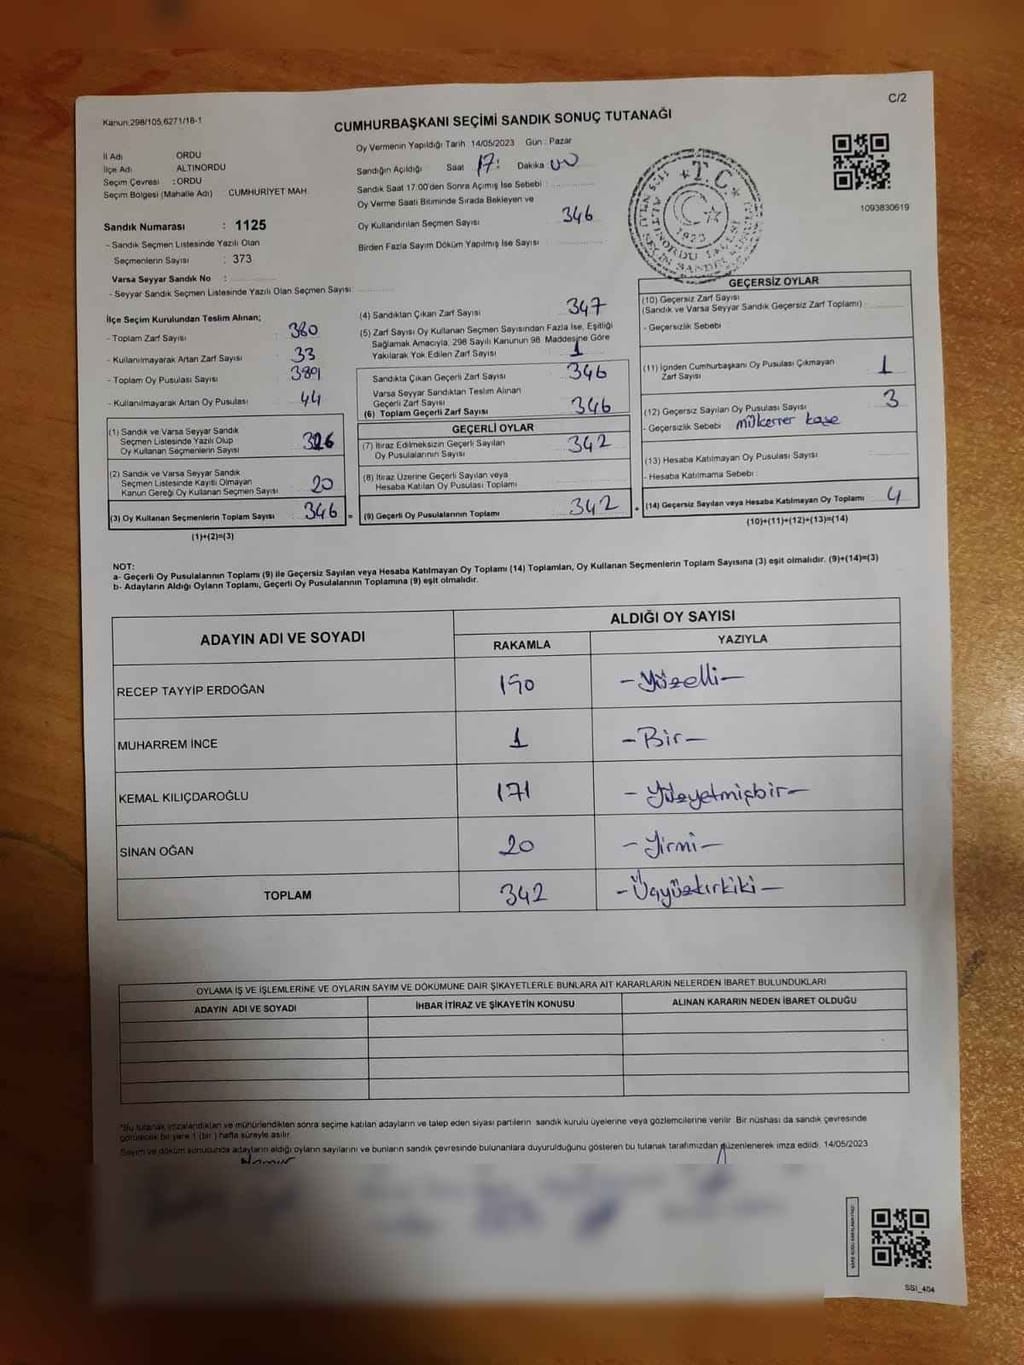 C/2
Kanun:298/105,6271/18-1
CUMHURBAŞKANI SEÇİMİ SANDIK SONUÇ TUTANAĞI
İl Adı : ORDU
İlçe Adı : ALTINORDU
Seçim Çevresi : ORDU
Seçim Bölgesi (Mahalle Adı) CUMHURİYET MAH.
Sandık Numarası : 1125
- Sandık Seçmen Listesinde Yazılı Olan
Seçmenlerin Sayısı : 373
Varsa Seyyar Sandık No :
- Seyyar Sandık Seçmen Listesinde Yazılı Olan Seçmen Sayısı:
Oy Vermenin Yapıldığı Tarih 14/05/2023 Gün : Pazar
Sandığın Açıldığı Saat 17: Dakika 00
Sandık Saat 17:00'den Sonra Açımış İse Sebebi :
Oy Verme Saati Bitiminde Sırada Bekleyen ve
Oy Kullandırılan Seçmen Sayısı 346
Birden Fazla Sayım Döküm Yapılmış İse Sayısı
T.C.
1923
1093830619
İlçe Seçim Kurulundan Teslim Alınan;
- Toplam Zarf Sayısı : 380
- Kullanılmayarak Artan Zarf Sayısı : 33
- Toplam Oy Pusulası Sayısı : 389
- Kullanılmayarak Artan Oy Pusulası : 44
(1) Sandık ve Varsa Seyyar Sandık
Seçmen Listesinde Yazılı Olup
Oy Kullanan Seçmenlerin Sayısı 326
(2) Sandık ve Varsa Seyyar Sandık
Seçmen Listesinde Kayıtlı Olmayan
Kanun Gereği Oy Kullanan Seçmen Sayısı 20
(3) Oy Kullanan Seçmenlerin Toplam Sayısı : 346
(1)+(2)=(3)
(4) Sandıktan Çıkan Zarf Sayısı 347
(5) Zarf Sayısı Oy Kullanan Seçmen Sayısından Fazla İse, Eşitliği
Sağlamak Amacıyla, 298 Sayılı Kanunun 98. Maddesine Göre
Yakılarak Yok Edilen Zarf Sayısı 1
Sandıkta Çıkan Geçerli Zarf Sayısı 346
Varsa Seyyar Sandıktan Teslim Alınan
Geçerli Zarf Sayısı
(6) Toplam Geçerli Zarf Sayısı 346
GEÇERLİ OYLAR
(7) İtiraz Edilmeksizin Geçerli Sayılan
Oy Pusulalarının Sayısı 342
(8) İtiraz Üzerine Geçerli Sayılan veya
Hesaba Katılan Oy Pusulası Toplamı
= (9) Geçerli Oy Pusulalarının Toplamı 342
GEÇERSİZ OYLAR
(10) Geçersiz Zarf Sayısı
(Sandık ve Varsa Seyyar Sandık Geçersiz Zarf Toplamı)
- Geçersizlik Sebebi
(11) İçinden Cumhurbaşkanı Oy Pusulası Çıkmayan
Zarf Sayısı 1
(12) Geçersiz Sayılan Oy Pusulası Sayısı 3
- Geçersizlik Sebebi mükerrer kaşe
(13) Hesaba Katılmayan Oy Pusulası Sayısı
- Hesaba Katılmama Sebebi :
+ (14) Geçersiz Sayılan veya Hesaba Katılmayan Oy Toplamı 4
(10)+(11)+(12)+(13)=(14)
NOT:
a- Geçerli Oy Pusulalarının Toplamı (9) ile Geçersiz Sayılan veya Hesaba Katılmayan Oy Toplamı (14) Toplamları, Oy Kullanan Seçmenlerin Toplam Sayısına (3) eşit olmalıdır. (9)+(14)=(3)
b- Adayların Aldığı Oyların Toplamı, Geçerli Oy Pusulalarının Toplamına (9) eşit olmalıdır.
ADAYIN ADI VE SOYADI ALDIĞI OY SAYISI
RAKAMLA YAZIYLA
RECEP TAYYİP ERDOĞAN 150 -Yüzelli-
MUHARREM İNCE 1 -Bir-
KEMAL KILIÇDAROĞLU 171 -Yüzyetmişbir-
SİNAN OĞAN 20 -Yirmi-
TOPLAM 342 -Üçyüzkırkiki-
OYLAMA İŞ VE İŞLEMLERİNE VE OYLARIN SAYIM VE DÖKÜMÜNE DAİR ŞİKAYETLERLE BUNLARA AİT KARARLARIN NELERDEN İBARET BULUNDUKLARI
ADAYIN ADI VE SOYADI İHBAR İTİRAZ VE ŞİKAYETİN KONUSU ALINAN KARARIN NEDEN İBARET OLDUĞU
*Bu tutanak imzalandıktan ve mühürlendikten sonra seçime katılan adayların ve talep eden siyasi partilerin sandık kurulu üyelerine veya gözlemcilerine verilir. Bir nüshası da sandık çevresinde
görülecek bir yere 1 (bir) hafta süreyle asılır.
Sayım ve döküm sonucunda adayların aldığı oyların sayılarını ve bunların sandık çevresinde bulunanlara duyurulduğunu gösteren bu tutanak tarafımızdan düzenlenerek imza edildi. 14/05/2023
SSI_404